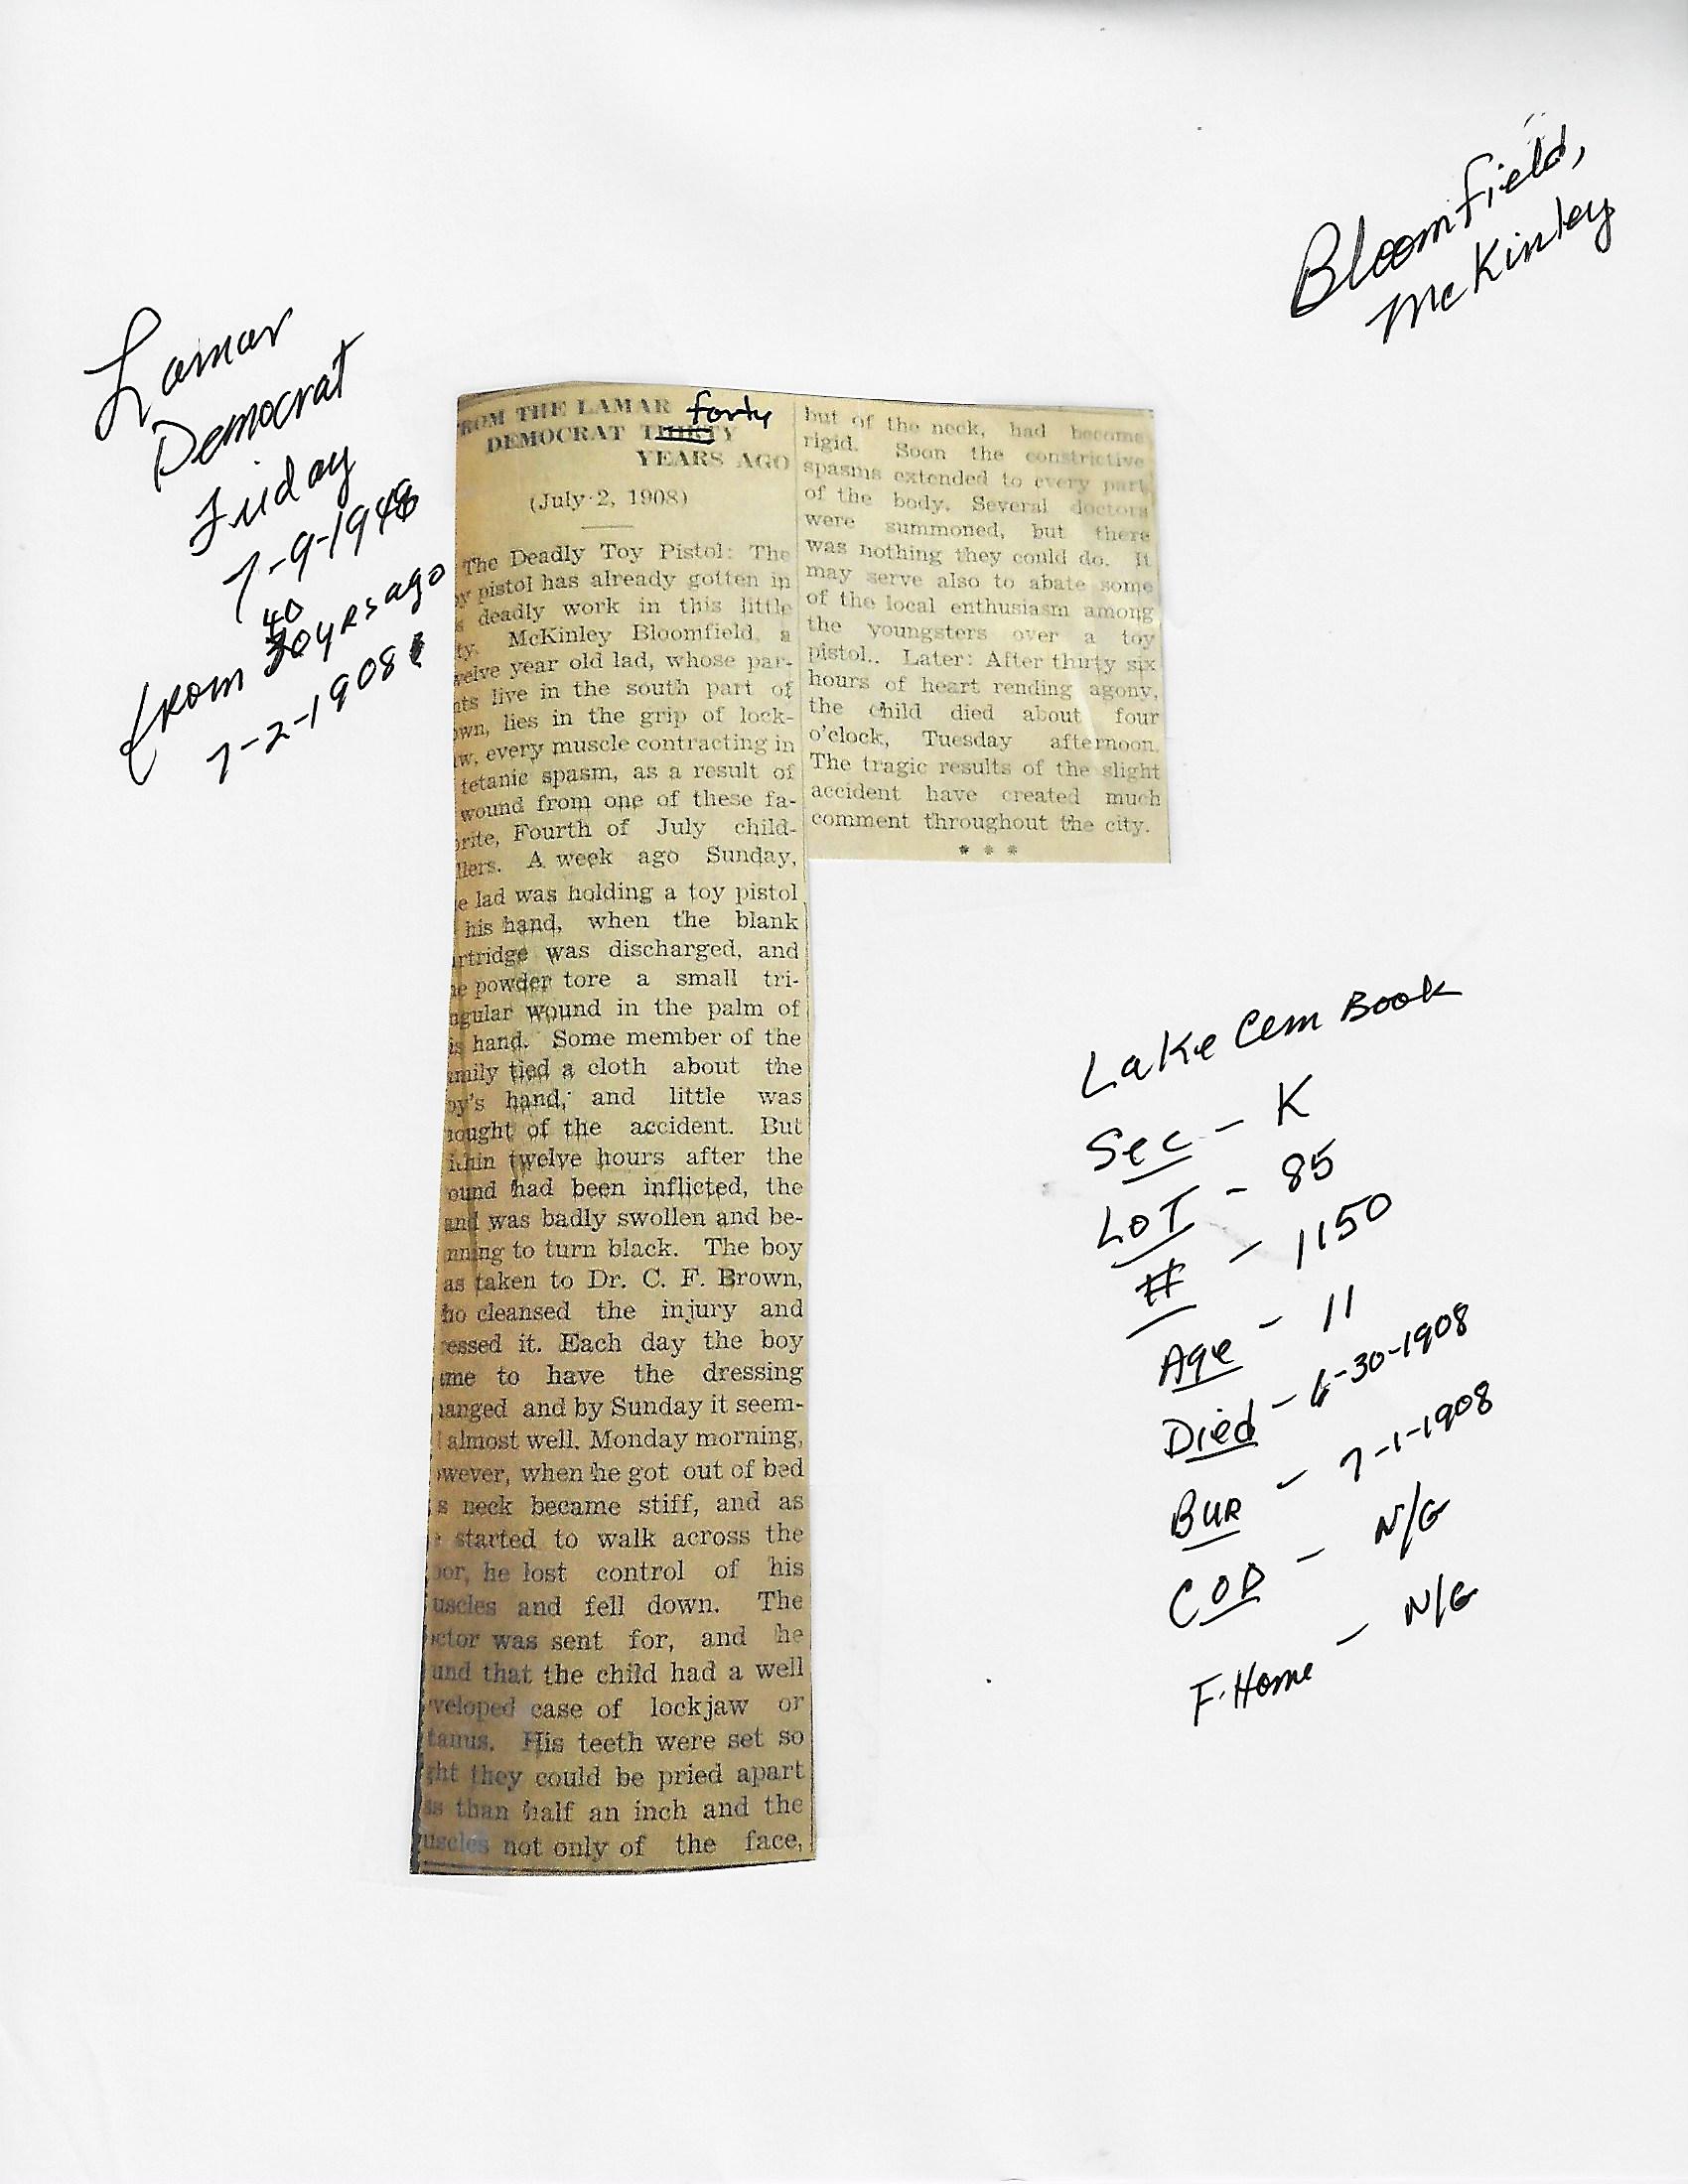 Bloomfield,
McKinley
Lamar
Democrat
Friday
7-9-1948
40
from 30 yrs ago
7-2-1908
ROM THE LAMAR forty
DEMOCRAT THIRTY
YEARS AGO
(July 2, 1908)
The Deadly Toy Pistol: The
y pistol has already gotten in
s deadly work in this little
ty. McKinley Bloomfield, a
welve year old lad, whose par-
nts live in the south part of
own, lies in the grip of lock-
w, every muscle contracting in
tetanic spasm, as a result of
wound from one of these fa-
orite, Fourth of July child-
llers. A week ago Sunday,
e lad was holding a toy pistol
his hand, when the blank
artridge was discharged, and
he powder tore a small tri-
ngular wound in the palm of
is hand. Some member of the
amily tied a cloth about the
oy's hand, and little was
hought of the accident. But
ithin twelve hours after the
ound had been inflicted, the
and was badly swollen and be-
nning to turn black. The boy
as taken to Dr. C. F. Brown,
ho cleansed the injury and
ressed it. Each day the boy
ame to have the dressing
hanged and by Sunday it seem-
almost well. Monday morning,
owever, when he got out of bed
s neck became stiff, and as
e started to walk across the
oor, he lost control of his
uscles and fell down. The
octor was sent for, and he
und that the child had a well
veloped case of lockjaw or
tanus. His teeth were set so
ght they could be pried apart
ss than half an inch and the
uscles not only of the face,
but of the neck, had become
rigid. Soon the constrictive
spasms extended to every part
of the body. Several doctors
were summoned, but there
was nothing they could do. It
may serve also to abate some
of the local enthusiasm among
the youngsters over a toy
pistol.. Later: After thirty six
hours of heart rending agony,
the child died about four
o'clock, Tuesday afternoon.
The tragic results of the slight
accident have created much
comment throughout the city.
* * *
Lake Cem Book
Sec - K
LOT - 85
# - 1150
Age - 11
Died - 6-30-1908
BUR - 7-1-1908
COD - N/G
F. Home - N/G